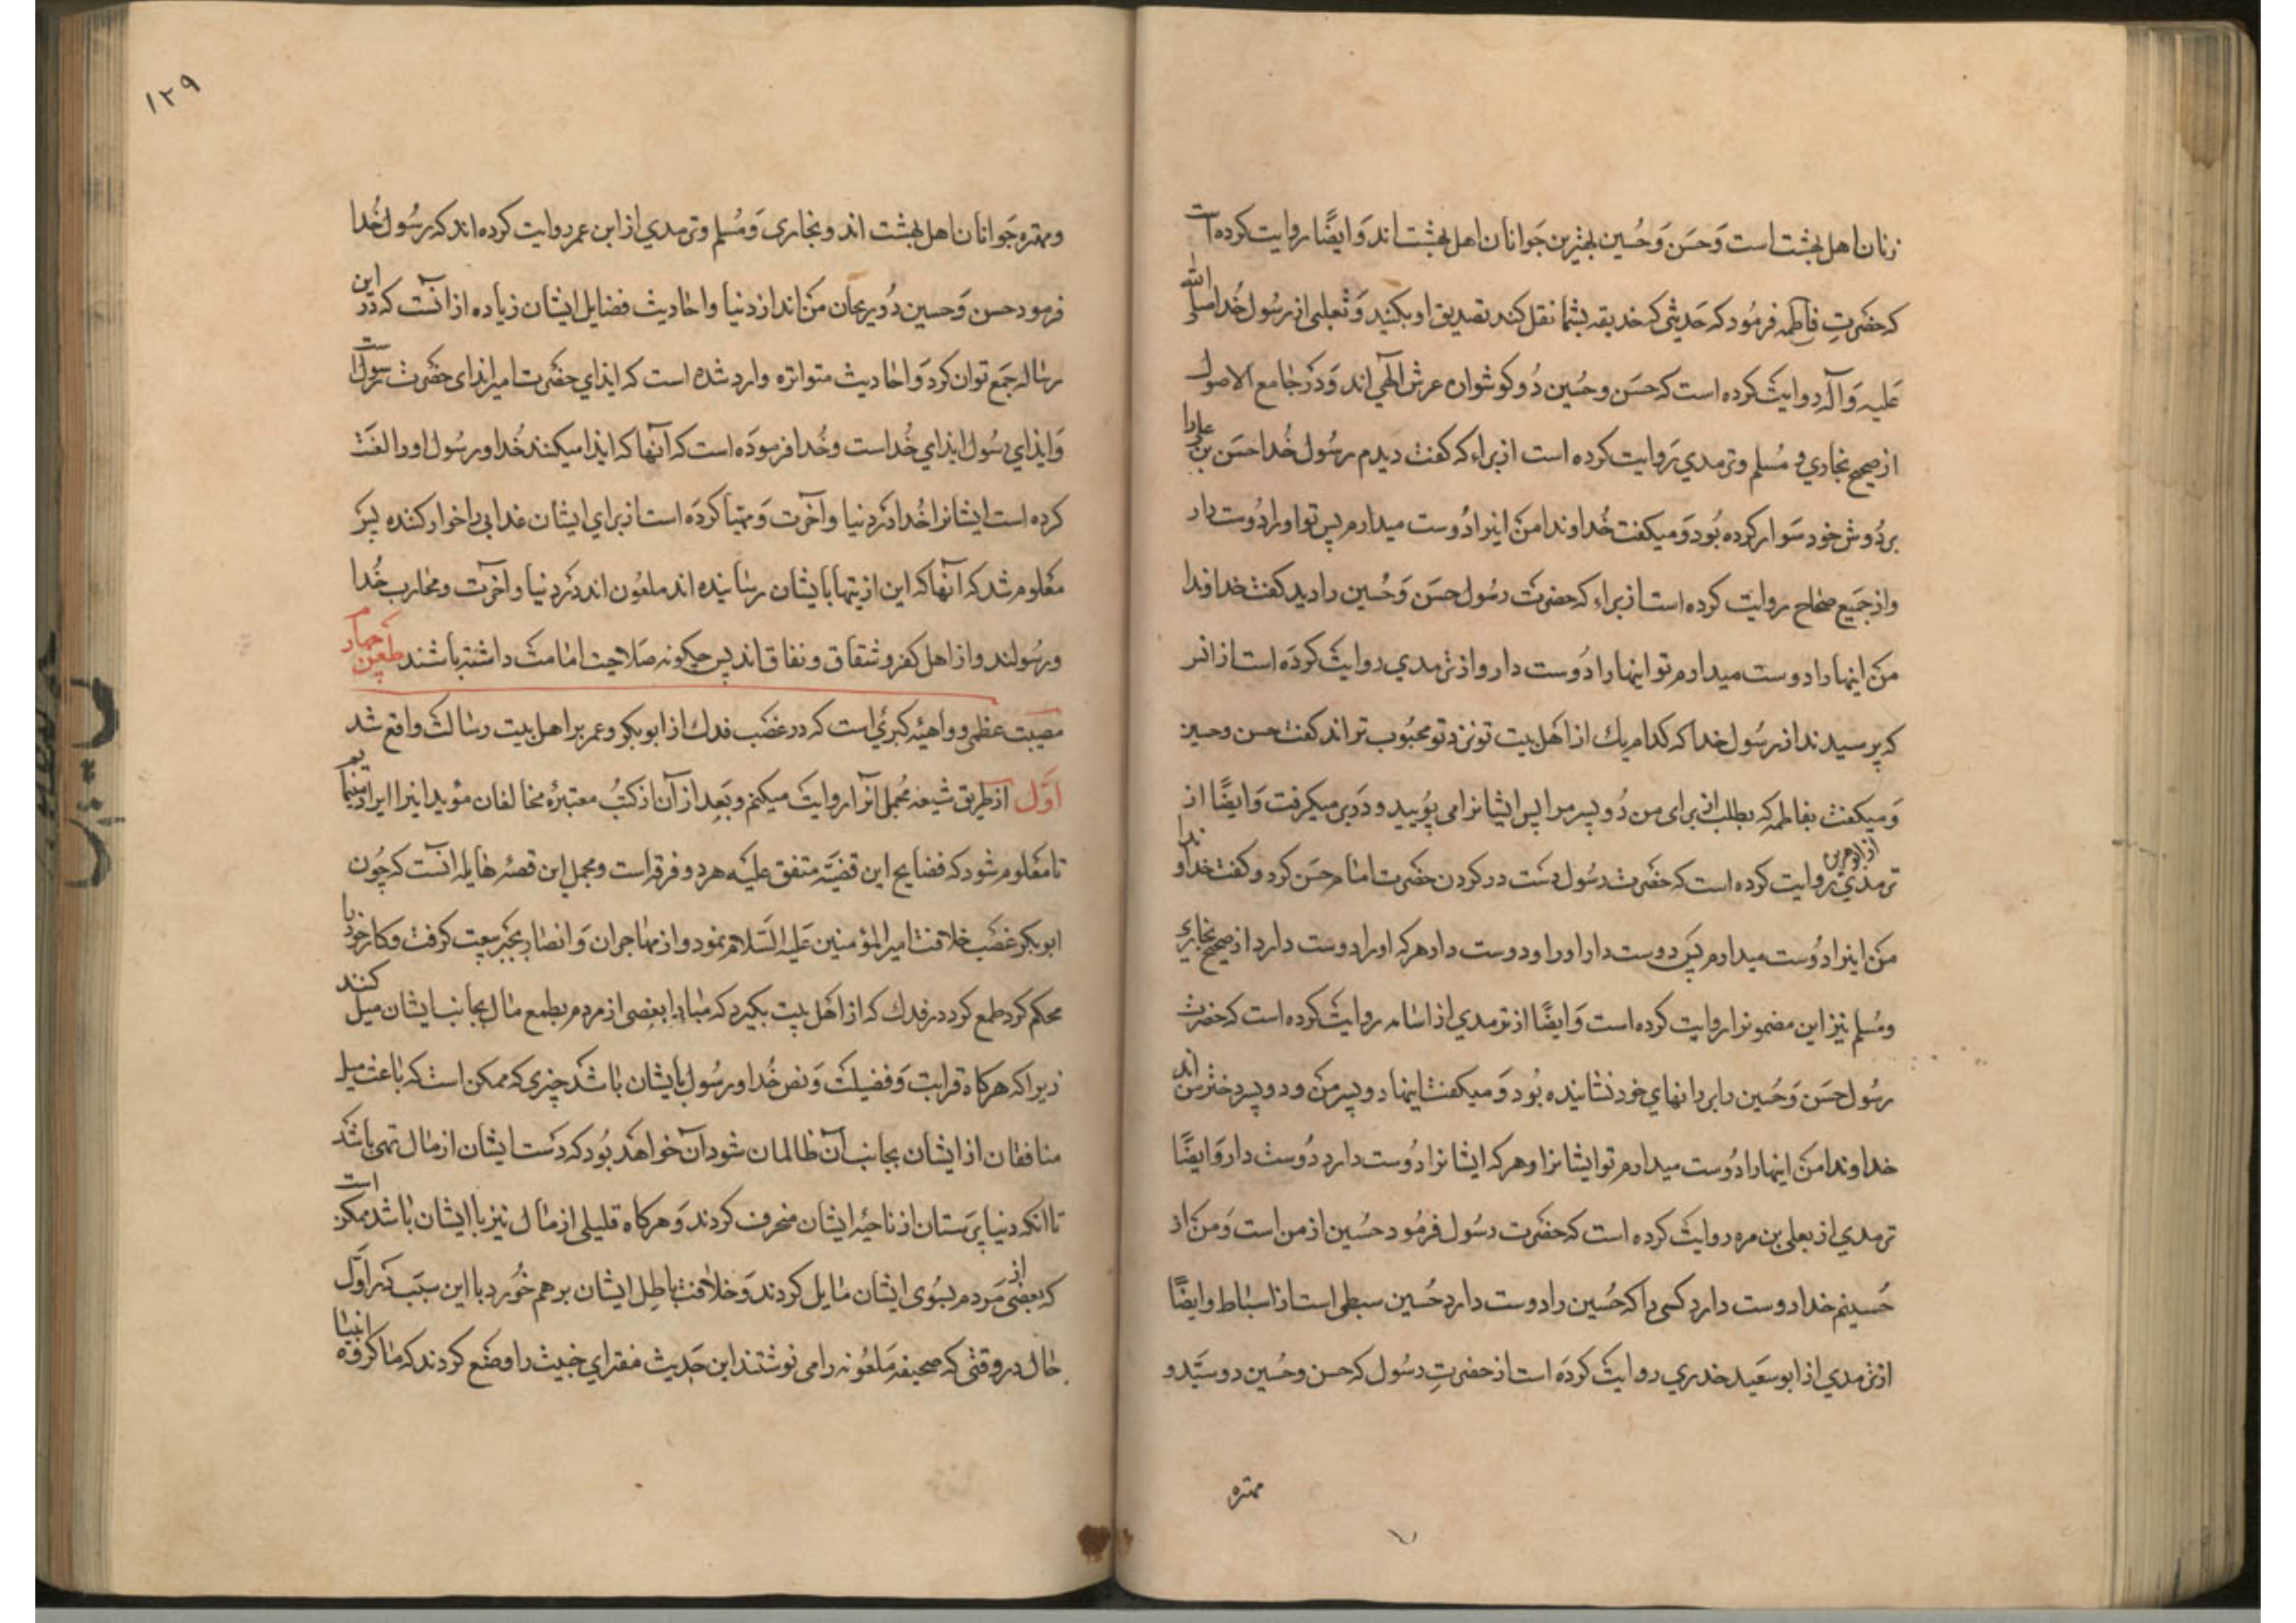 زنان اهل بهشت است وَحسَن وَحُسین بهترین جَوانان اهل بهشت اند وَایضًا روایت کرده است
که حضرتِ فاطمه فرمُود که حَدیثی که خدیقه بشما نقل کند تصدیق او بکنید وَثعلبی از رسُول خُدا صلی الله
عَلیه وَآله روایت کرده است که حسَن وحُسین دُو کوشوان عرش الٓهی اند وَدَر جامع الاصول
از صحیح بخاری و مُسلم وترمدی رَوایت کرده است از براء که کفت دیدم رسُول خُدا حسَن بن علی را
بر دُوش خود سَوار کرده بُود وَمیکفت خُداوندا من اینرا دُوست میدارم پس تو او را دُوست دار
واز جَمیع صحاح روایت کرده است از براء که حضرت رسُول حسَن وَحُسین را دید کفت خداوندا
من اینها را دوست میدارم تو اینها را دُوست دار واز ترمدی روایت کرده است از انس
که پرسیدند از رسُول خدا که کدام یك از اهل بیت تو نزد تو محبُوب تر اند کفت حسن وحسین
وَمیکفت بفاطمه که بطلب از برای من دُو پسر مرا پس ایشانرا می بوُیید و در بر میکرفت وَایضًا از
ترمدی از ابو هریره روایت کرده است که حضرت رسُول دست در کردن حضرت امام حسَن کرد و کفت خداوندا
من اینرا دُوست میدارم پس دوست دار او را و دوست دار هر که او را دوست دارد از صحیح بخاری
ومُسلم نیز این مضمونرا روایت کرده است وَایضًا از ترمدی از اسامه روایت کرده است که حضرت
رسُول حسَن وَحُسین را بر رانهای خود نشانیده بُود وَمیکفت اینها دو پسر من و دو پسر دختر من اند
خداوندا من اینها را دُوست میدارم تو ایشانرا وهر که ایشانرا دُوست دارد دُوست دار وَایضًا
ترمدی از یعلی بن مره روایت کرده است که حضرت رسُول فرمُود حُسین از من است وَمن از
حُسینم خدا دوست دارد کسی را که حُسین را دوست دارد حُسین سبطی است از اسباط وایضًا
از ترمدی از ابو سعَید خدری روایت کرده است از حضرتِ رسُول که حسن وحُسین دو سیّد و
مهتره
١٢٩
ومهتره جَوانان اهل بهشت اند وبخاری وَمُسلم وترمدی از ابن عمر روایت کرده اند که رسُول خُدا
فرمود حسن وَحسین دُو ریحان من اند از دنیا واحادیث فضایل ایشان زیاده از انست که در این
رساله جمَع توان کرد وَاحادیث متواتره وارد شده است که ایذای حضرت امیر ایذای حضرت رسول است
وَایذای رسُول ایذای خُداست وخُدا فرموده است که آنها که ایذا میکنند خُدا ورسُول او را لعنَت
کرده است ایشانرا خُدا در دنیا وآخرت وَمهیّا کرده است از برای ایشان عذابی را خوار کننده پس
معَلوم شد که آنها که این اذیتها بایشان رسانیده اند ملعُون اند در دنیا وآخرت ومحارب خُدا
ورسُولند واز اهل کفر وشقاق ونفاق اند پس چکونه صَلاحیت امامت داشته باشند طعن چهارم
مصیبت عظمی وواهیئه کبرئی است که در غصَب فدك از ابو بکر وعمر بر اهل بیت رسالت واقع شد
اوّل از طریق شیعه مُجمل آنرا روایت میکنم وبَعد از آن از کتُب معتبرۀ مخالفان مؤید اینرا ایراد مینمایم
تا معَلوم شود که فضایح این قضیّه متفق علَیه هر دو فرقه است ومجمل این قصۀ هایله انست که چُون
ابو بکر غصَب خلافت امیر المؤمنین عَلیه السَلام نمود واز مهاجران وَانصار بجبر بیعت کرفت وکار خود را
محکم کرد طمع کرد در فدك که از اهَل بیت بکیرد که مبادا بعضِی از مردم بطمع مال بجانب ایشان میل کنند
زیرا که هر کاه قرابت وَفضیلت وَنص خُدا ورسُول بایشان باشد چیزی که ممکن است که باعث میل
منافقان از ایشان بجانب آن ظالمان شود آن خواهد بُود که دست ایشان از مال تهی باشد
تا انکه دنیا پرَستان از ناحیۀ ایشان منحرف کردند وَهر کاه قلیلی از مال نیز با ایشان باشد ممکن است
که بعضی از مَردم بسُوی ایشان مایل کردند وَخلافت باطِل ایشان بر هم خُورد با این سبب در اوّل
حال در وقتی که صحیفه مَلعُونه را می نوشتند این حَدیث مفترای خبیث را وضع کردند که ما کروه انبیا